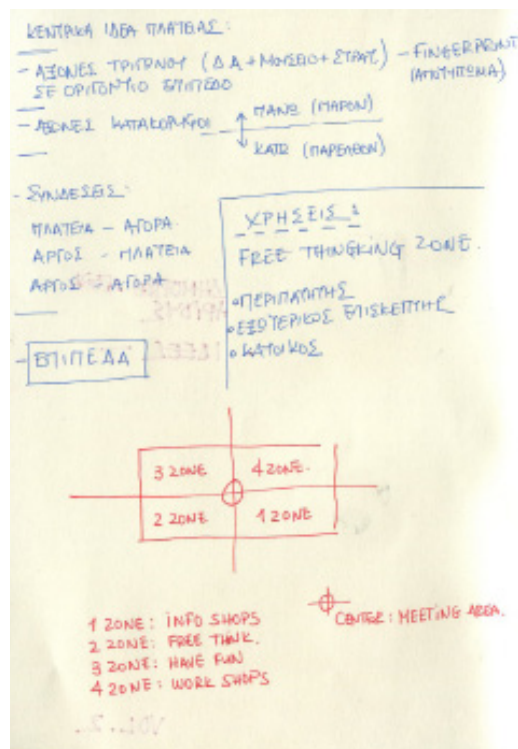 ΚΕΝΤΡΙΚΑ ΙΔΕΑ ΠΛΑΤΕΙΑΣ:
- ΑΞΟΝΕΣ ΤΡΙΓΩΝΟΥ (ΔΑ + ΜΟΥΣΕΙΟ + ΣΤΡΑΤ.) - FINGERPRINT
ΣΕ ΟΡΙΖΟΝΤΙΟ ΕΠΙΠΕΔΟ (ΑΠΟΤΥΠΩΜΑ)
- ΑΞΟΝΕΣ ΚΑΤΑΚΟΡΥΦΟΙ ΠΑΝΩ (ΠΑΡΟΝ)
ΚΑΤΩ (ΠΑΡΕΛΘΟΝ)
- ΣΥΝΔΕΣΕΙΣ:
ΠΛΑΤΕΙΑ - ΑΓΟΡΑ
ΑΡΓΟΣ - ΠΛΑΤΕΙΑ
ΑΡΓΟΣ - ΑΓΟΡΑ
- ΕΠΙΠΕΔΑ
ΧΡΗΣΕΙΣ:
FREE THINGKING ZONE.
• ΠΕΡΙΠΑΤΗΤΗΣ
• ΕΞΩΤΕΡΙΚΟΣ ΕΠΙΣΚΕΠΤΗΣ
• ΚΑΤΟΙΚΟΣ
3 ZONE 4 ZONE.
2 ZONE 1 ZONE
1 ZONE: INFO SHOPS
2 ZONE: FREE THINK.
3 ZONE: HAVE FUN
4 ZONE: WORK SHOPS
CENTER: MEETING AREA.